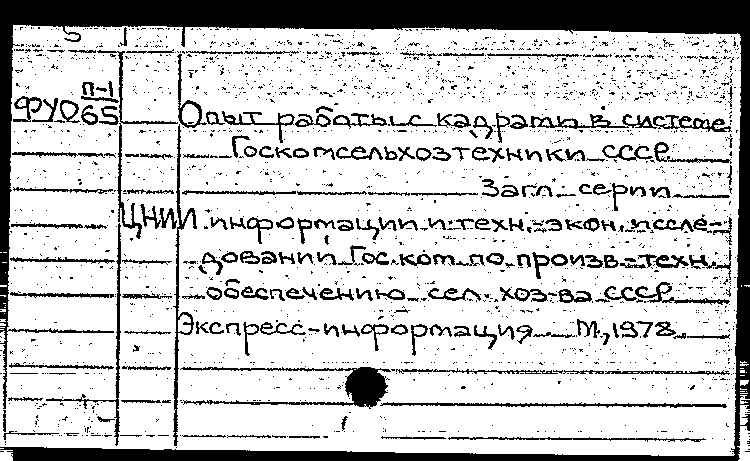 П-1
ФУ065
Опыт работы с кадрами в системе
Госкомсельхозтехники СССР.
Загл. серии
ЦНИИ информации и техн.-экон. иссле-
дований Гос. ком. по произв.-техн.
обеспечению сел. хоз-ва СССР.
Экспресс-информация. М., 1978.